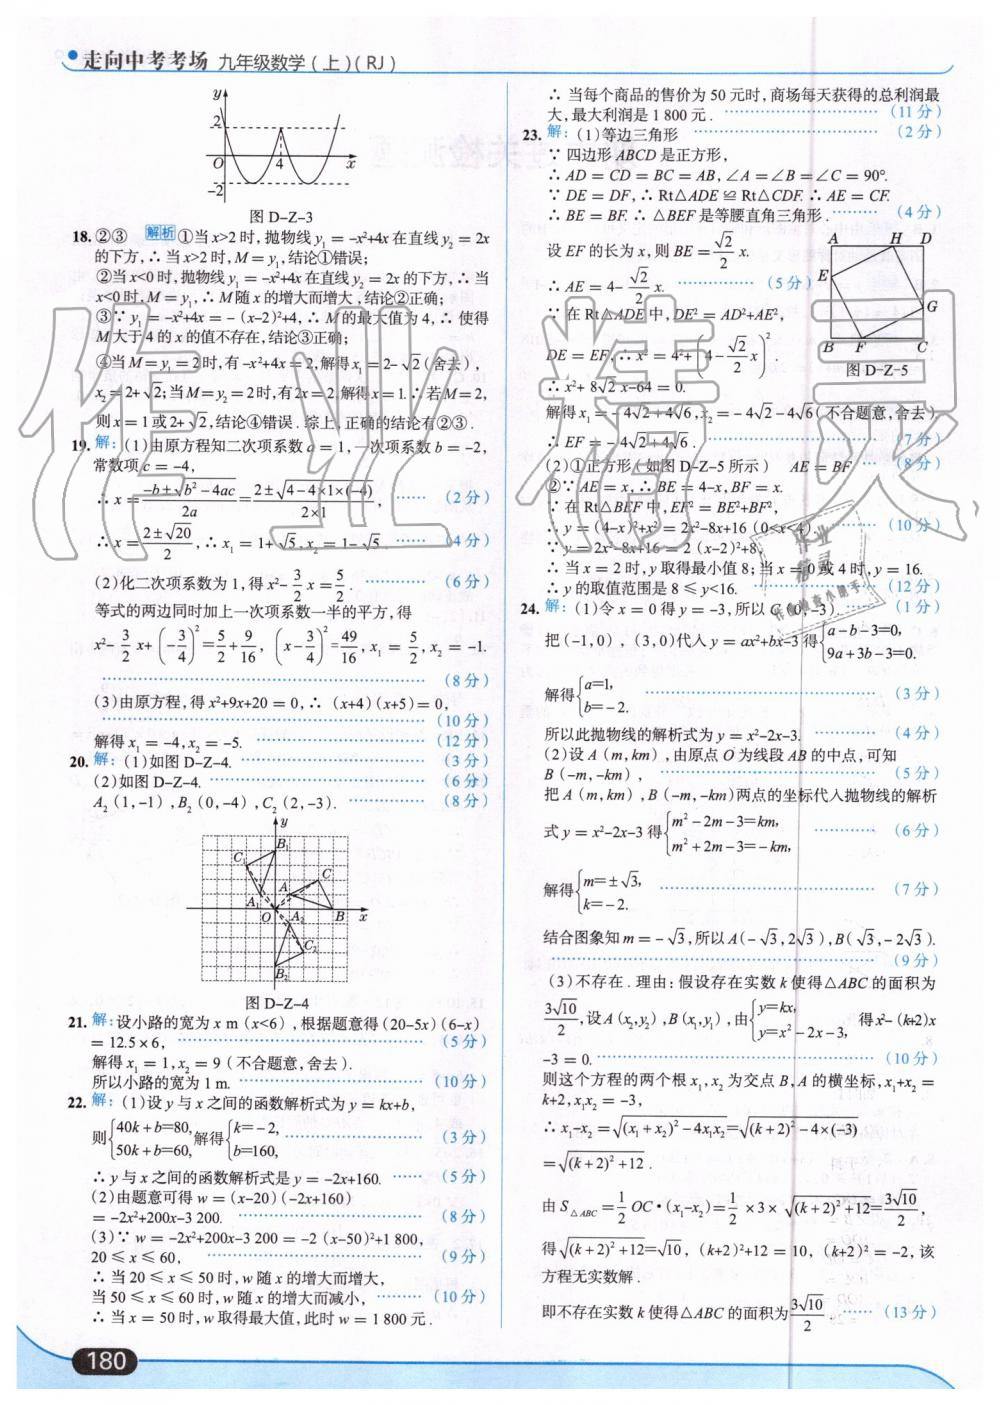 走向中考考场 九年级数学(上)(RJ)
y
2
O
4
x
-2
图 D-Z-3
18. ②③ 解析 ①当 x>2 时,抛物线 y₁ = -x²+4x 在直线 y₂ = 2x
的下方,∴ 当 x>2 时,M = y₁,结论①错误;
②当 x<0 时,抛物线 y₁ = -x²+4x 在直线 y₂ = 2x 的下方,∴ 当
x<0 时,M = y₁,∴ M 随 x 的增大而增大,结论②正确;
③∵ y₁ = -x²+4x = -(x-2)²+4,∴ M 的最大值为 4,∴ 使得
M 大于 4 的 x 的值不存在,结论③正确;
④当 M = y₁ = 2 时,有 -x²+4x = 2,解得 x₁ = 2-√2(舍去),
x₂ = 2+√2;当 M = y₂ = 2 时,有 2x = 2.解得 x = 1.∴ 若 M = 2,
则 x = 1 或 2+√2,结论④错误. 综上,正确的结论有②③.
19. 解:(1)由原方程知二次项系数 a = 1,一次项系数 b = -2,
常数项 c = -4,
∴ x = (-b±√(b²-4ac))/(2a) = (2±√(4-4×1×(-4)))/(2×1), …… (2 分)
∴ x = (2±√20)/2,∴ x₁ = 1+√5,x₂ = 1-√5. …… (4 分)
(2)化二次项系数为 1,得 x²-3/2 x = 5/2. …… (6 分)
等式的两边同时加上一次项系数一半的平方,得
x²-3/2 x+(-3/4)² = 5/2+9/16,(x-3/4)² = 49/16,x₁ = 5/2,x₂ = -1.
…… (8 分)
(3)由原方程,得 x²+9x+20 = 0,∴ (x+4)(x+5) = 0,
…… (10 分)
解得 x₁ = -4,x₂ = -5. …… (12 分)
20. 解:(1)如图 D-Z-4. …… (3 分)
(2)如图 D-Z-4. …… (6 分)
A₂(1,-1),B₂(0,-4),C₂(2,-3). …… (8 分)
y
B₁
C₁
C
A
A₁
O
B
x
A₂
C₂
B₂
图 D-Z-4
21. 解:设小路的宽为 x m (x<6),根据题意得(20-5x)(6-x)
= 12.5×6, …… (5 分)
解得 x₁ = 1,x₂ = 9 (不合题意,舍去).
所以小路的宽为 1 m. …… (10 分)
22. 解:(1)设 y 与 x 之间的函数解析式为 y = kx+b,
则{40k+b=80, 50k+b=60,解得{k=-2, b=160, …… (3 分)
∴ y 与 x 之间的函数解析式是 y = -2x+160. …… (5 分)
(2)由题意可得 w = (x-20)(-2x+160)
= -2x²+200x-3 200. …… (8 分)
(3)∵ w = -2x²+200x-3 200 = -2 (x-50)²+1 800,
20 ≤ x ≤ 60, …… (9 分)
∴ 当 20 ≤ x ≤ 50 时,w 随 x 的增大而增大,
当 50 ≤ x ≤ 60 时,w 随 x 的增大而减小, …… (10 分)
∴ 当 x = 50 时,w 取得最大值,此时 w = 1 800 元.
180
∴ 当每个商品的售价为 50 元时,商场每天获得的总利润最
大,最大利润是 1 800 元. …… (11 分)
23. 解:(1)等边三角形 …… (2 分)
∵ 四边形 ABCD 是正方形,
∴ AD = CD = BC = AB,∠A = ∠B = ∠C = 90°.
∵ DE = DF,∴ Rt△ADE ≌ Rt△CDF. ∴ AE = CF.
∴ BE = BF. ∴ △BEF 是等腰直角三角形. …… (4 分)
设 EF 的长为 x,则 BE = √2/2 x.
∴ AE = 4-√2/2 x. …… (5 分)
∵ 在 Rt△ADE 中,DE² = AD²+AE²,
DE = EF,∴ x² = 4²+(4-√2/2 x)².
∴ x²+8√2 x-64 = 0.
解得 x₁ = -4√2+4√6,x₂ = -4√2-4√6(不合题意,舍去).
∴ EF = -4√2+4√6. …… (7 分)
A
H
D
E
G
B
F
C
图 D-Z-5
(2)①正方形(如图 D-Z-5 所示) AE = BF …… (8 分)
②∵ AE = x,∴ BE = 4-x,BF = x.
∵ 在 Rt△BEF 中,EF² = BE²+BF²,
∴ y = (4-x)²+x² = 2x²-8x+16 (0<x<4). …… (10 分)
∵ y = 2x²-8x+16 = 2 (x-2)²+8,
∴ 当 x = 2 时,y 取得最小值 8;当 x = 0 或 4 时,y = 16.
∴ y 的取值范围是 8 ≤ y<16. …… (12 分)
24. 解:(1)令 x = 0 得 y = -3,所以 C (0,-3). …… (1 分)
把(-1,0),(3,0)代入 y = ax²+bx-3 得{a-b-3=0, 9a+3b-3=0.
解得{a=1, b=-2. …… (3 分)
所以此抛物线的解析式为 y = x²-2x-3. …… (4 分)
(2)设 A (m,km),由原点 O 为线段 AB 的中点,可知
B (-m,-km), …… (5 分)
把 A (m,km),B (-m,-km)两点的坐标代入抛物线的解析
式 y = x²-2x-3 得{m²-2m-3=km, m²+2m-3=-km, …… (6 分)
解得{m=±√3, k=-2. …… (7 分)
结合图象知 m = -√3,所以 A(-√3,2√3),B(√3,-2√3).
…… (9 分)
(3)不存在. 理由:假设存在实数 k 使得△ABC 的面积为
3√10/2,设 A (x₂,y₂),B (x₁,y₁),由{y=kx, y=x²-2x-3, 得 x²-(k+2)x
-3 = 0. …… (10 分)
则这个方程的两个根 x₁,x₂ 为交点 B,A 的横坐标,x₁+x₂ =
k+2,x₁x₂ = -3,
∴ x₁-x₂ = √((x₁+x₂)²-4x₁x₂) = √((k+2)²-4×(-3))
= √((k+2)²+12).
由 S△ABC = 1/2 OC·(x₁-x₂) = 1/2 ×3× √((k+2)²+12) = 3√10/2,
得 √((k+2)²+12) = √10,(k+2)²+12 = 10,(k+2)² = -2,该
方程无实数解.
即不存在实数 k 使得△ABC 的面积为 3√10/2. …… (13 分)
作业精灵